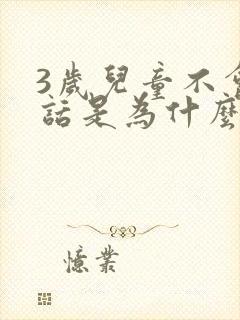 3歲兒童不會
話是為什麼
憶業